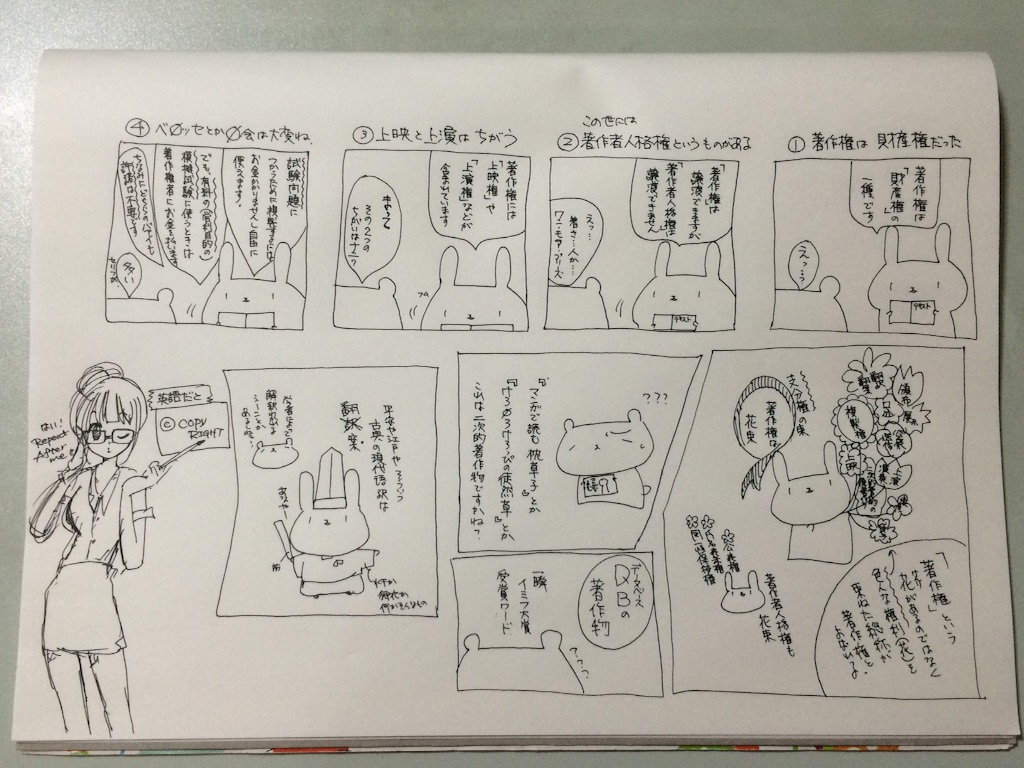 ① 著作権は 財産権だった
著作権は
「財産権の」
一種です
えっ…?
テキスト
この世には
② 著作者人格権というものがある
「著作権は
譲渡できますが
「著作者人格権は
譲渡できません」
えっ…
著き…人か…
ワンモアプリーズ
テキスト
③ 上映と上演は ちがう
著作権には
「上映権」や
「上演権」などが
含まれています
まって
その2つの
ちがいはナニ?
④ ベ〇ッセとか〇会は大変ね
試験問題に
つかうために複製するには
お金かかりません自由に
使えます!
でも、有料の(営利目的の
模擬試験に使うときは
著作権者にお金を払います
ちなみにどちらのバヤイも
許諾は不要です
多い
支分権の束
著作権は
花束
翻訳
頒布
展示
複製権
上映
「著作権」という
花があるのではなく
色んな権利(花)を
束ねた総称が
著作権と
公表権
氏名表示権
同一性保持権
著作者人格権も
花束
???
『マンガで読む枕草子』とか
『けろ〇けろけろっぴの徒然草』とか
これは二次的著作物ですかね?
データベース
DBの
著作物
一瞬
イミフ大賞
受賞ワード
平安や江戸やらっていう
古典の現代語訳は
翻訳案
英語だと
© COPY
RIGHT
はい!
Repeat
After
me!